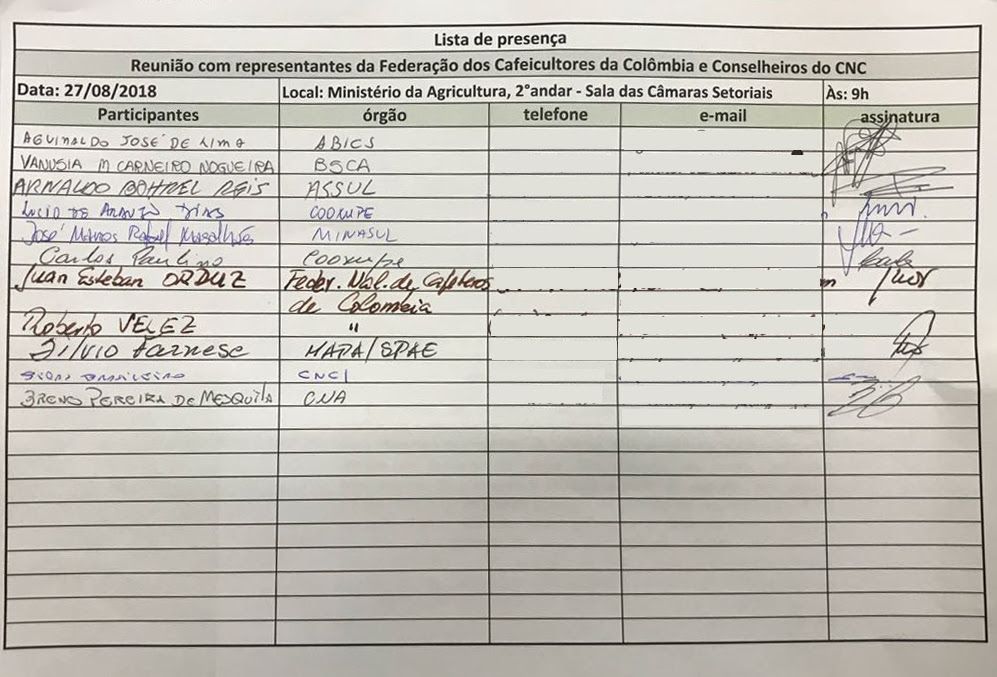 Lista de presença
Reunião com representantes da Federação dos Cafeicultores da Colômbia e Conselheiros do CNC
Data: 27/08/2018 Local: Ministério da Agricultura, 2°andar - Sala das Câmaras Setoriais Às: 9h
Participantes órgão telefone e-mail assinatura
AGUINALDO JOSÉ DE LIMA ABICS
VANUSIA M CARNEIRO NOGUEIRA BSCA
ARNALDO BOTREL REIS ASSUL
LUCIO DE ARAUJO DIAS COOXUPE
José Marcos Rafael Magalhães MINASUL
Carlos Paulino Cooxupe
Juan Esteban ORDUZ Feder. Nal. de Cafeteros
de Colombia
Roberto VELEZ "
Silvio Farnese MAPA/SPAE
SILAS BRASILEIRO CNC
BRENO PEREIRA DE MESQUITA CNA